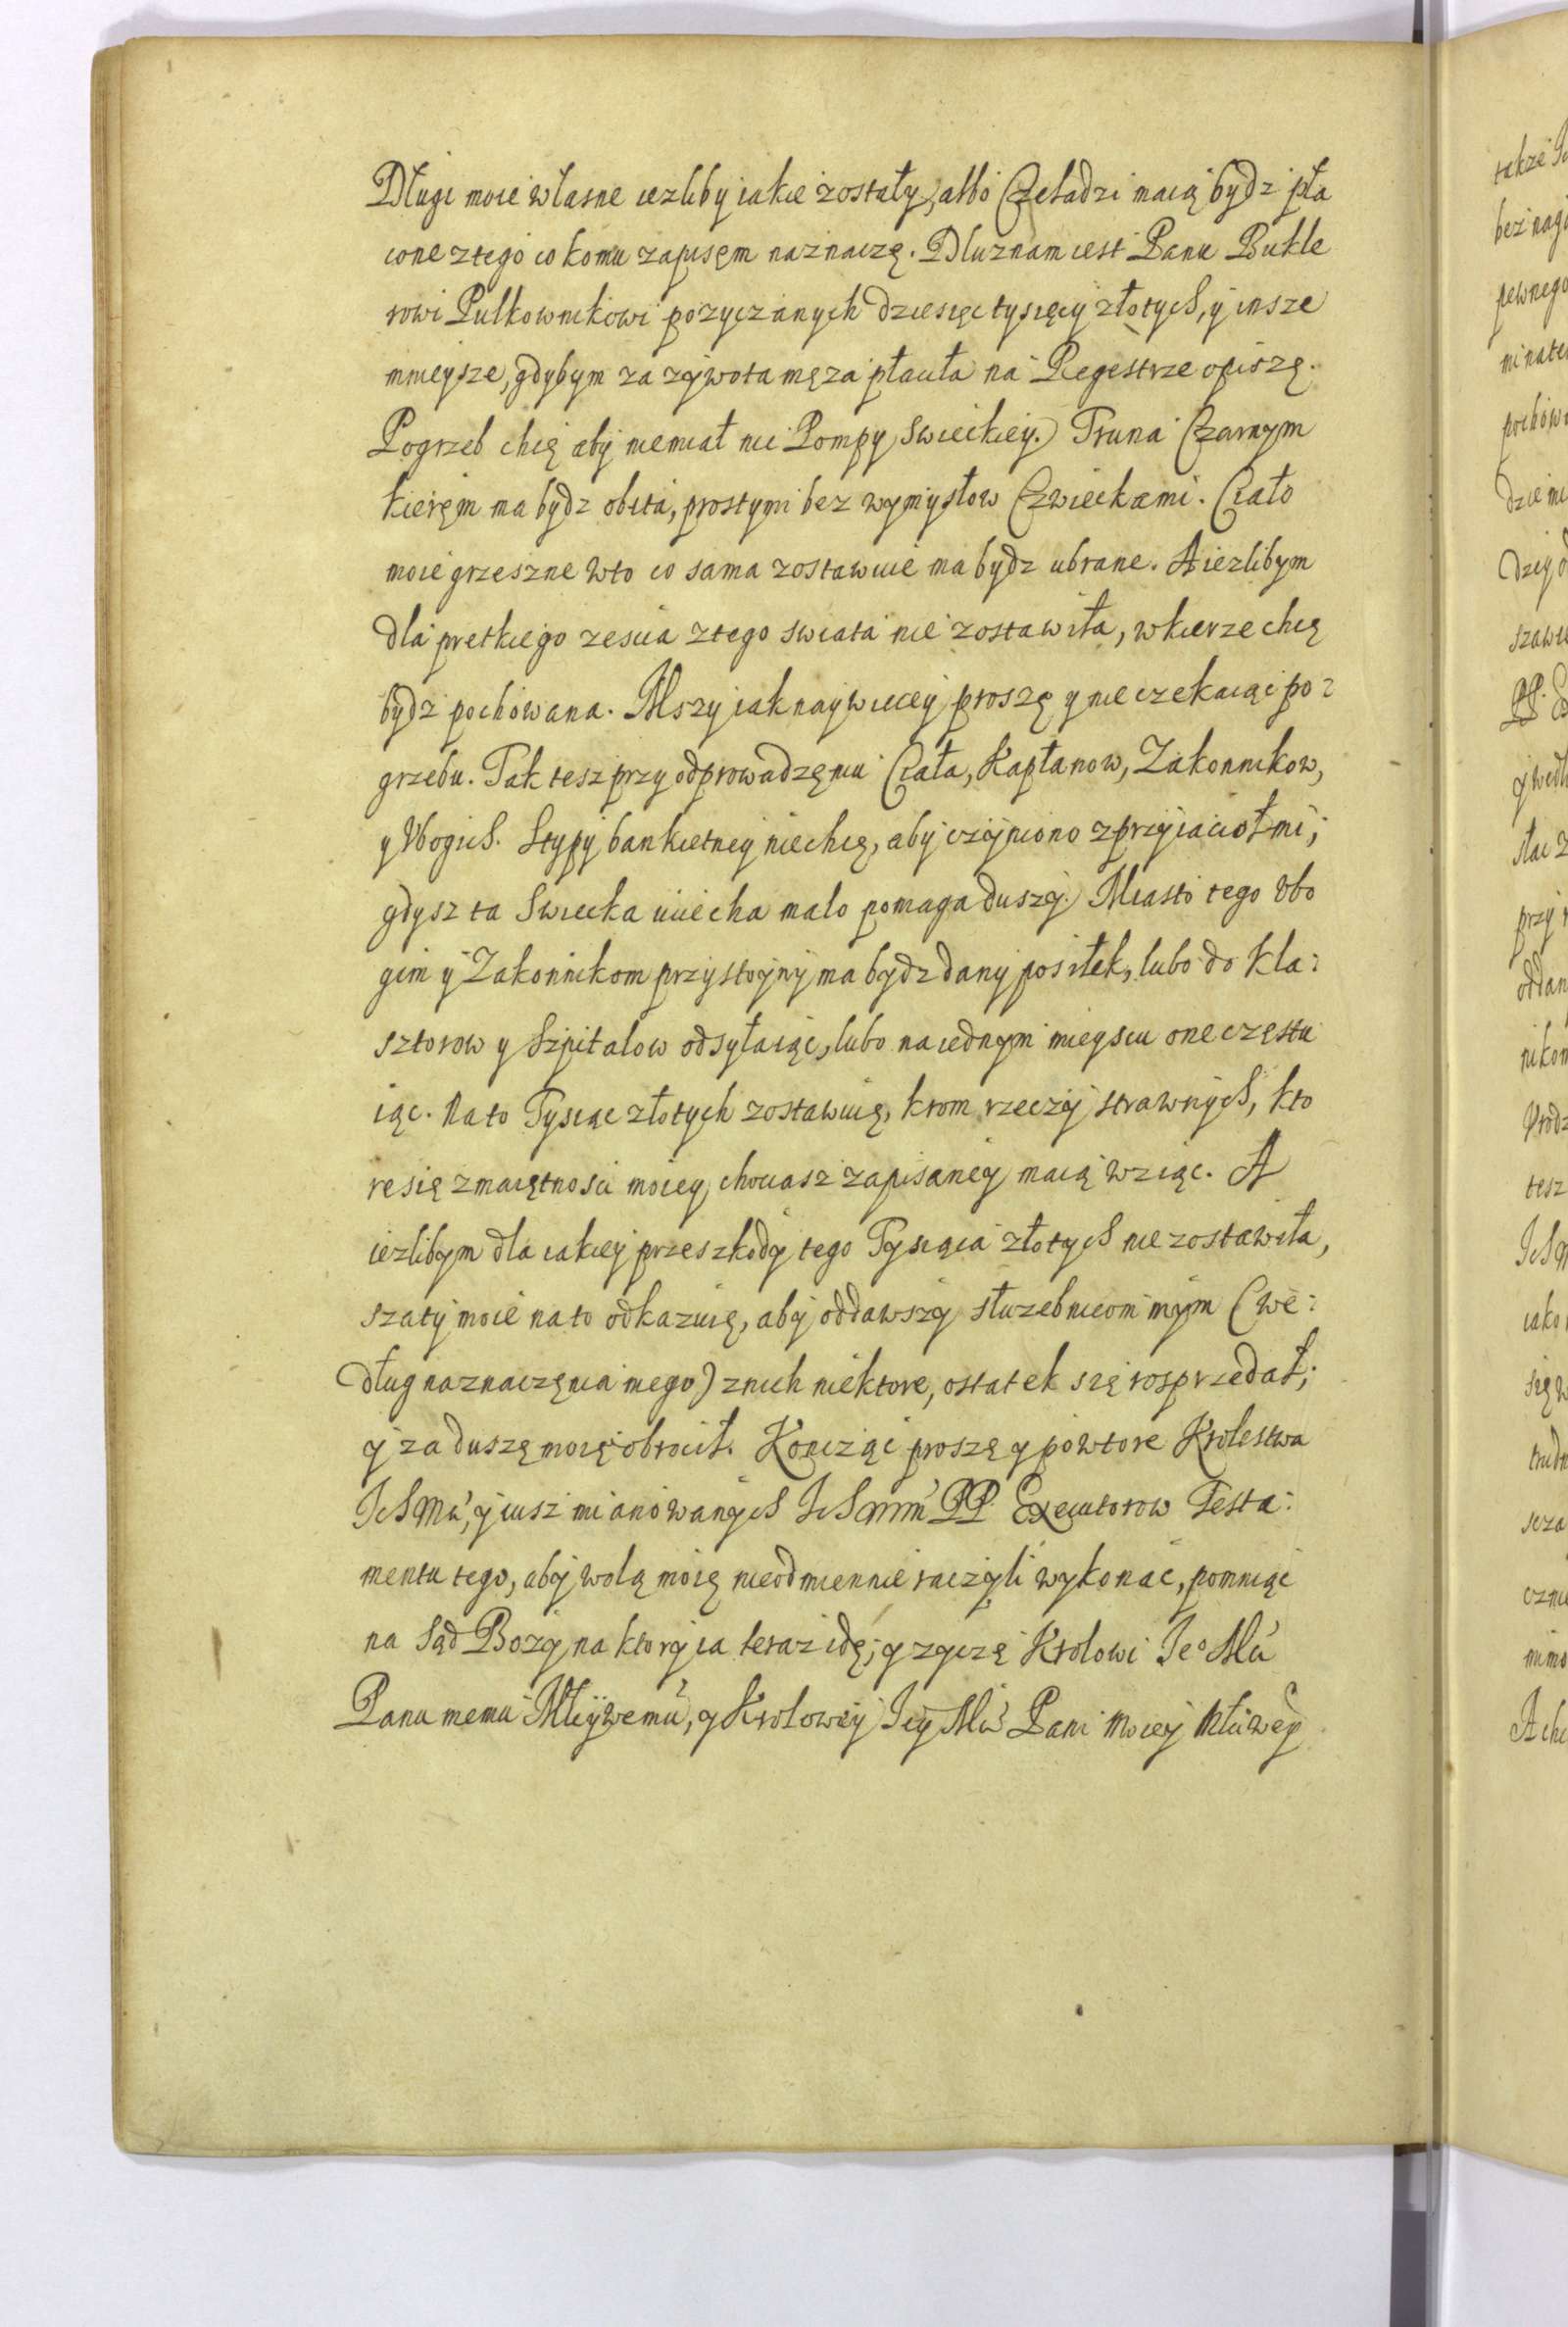 Długi moie własne iezliby iakie zostały, albo Czeladzi maią bydz pła
cone z tego co komu zapisęm naznaczę. Dluznam iest Panu Butle
rowi Pulkownikowi pozyczanych dziesięc tysięcy złotych, y insze
mnieysze, gdybym za zywota męza płaciła na Regestrze opiszę.
Pogrzeb chcę aby niemiał nic Pompy Swieckiey. Truna Czarnym
kieręm ma bydz obita, prostymi bez wymysłow Czwieckami. Ciało
moie grzeszne wto co sama zostawuie ma bydz ubrane. A iezlibym
dla pretkiego zescia z tego swiata nie zostawiła, wkierze chcę
bydz pochowana. Mszy iaknaywiecey proszę y nie czekaiąc po:
grzebu. Tak tesz przy odprowadzęniu Ciała, Kapłanow, Zakonnikow,
y Vbogich. Stypy bankietney niechcę, aby czyniono z przyiaciołmi;
gdysz ta Swiecka uciecha malo pomaga duszy. Miasto tego Vbo
gim y Zakonnikom przystoyny ma bydz dany posiłek, lubo do Kla:
sztorow y Szpitalow odsyłaiąc, lubo na iednym mieyscu one częstu
iąc. Na to Tysiąc złotych zostawuię, krom rzeczy strawnych, kto
re się z maiętnosci moiey, chociasz zapisaney maią wziąc. A
iezlibym dla iakiey przeszkody tego Tysiąca złotych nie zostawiła,
szaty moie na to odkazuię, aby oddawszy słuzebnicom mym (we:
dług naznaczęnia mego) znich niektore, ostatek się rosprzedał;
y za duszę moię obrocił. Koncząc proszę y powtore Krolestwa
Ich Mci, y iusz mianowanych Ich Mm PP. Executorow Testa:
mentu tego, aby wolą moię nieodmiennie raczyli wykonac, pomniąc
na Sąd Bozy na ktory ia teraz idę; y zyczę Krolowi Jeo Mci
Panu memu Mciwemu, y Krolowey Jey Mci Pani Moiey Mciwey